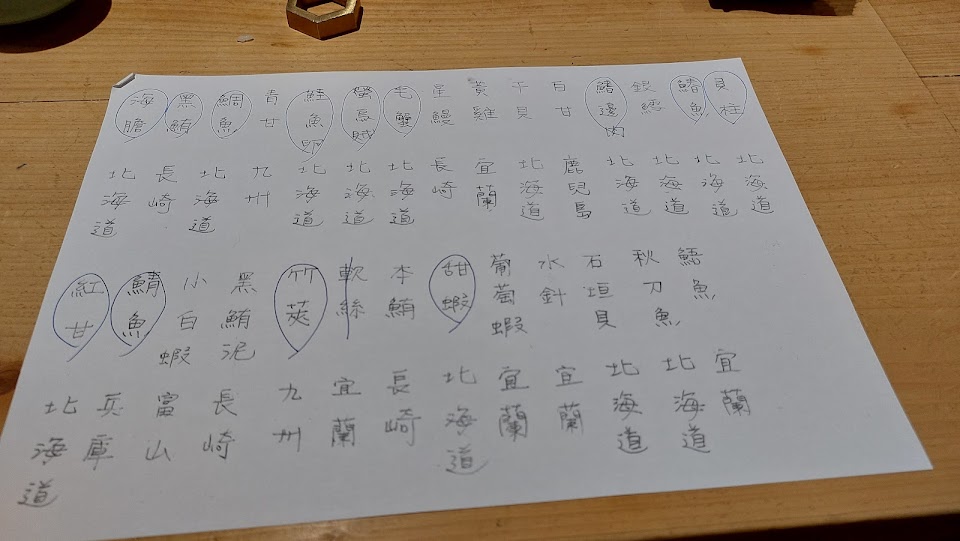 貝柱
鰭魚
銀鱈
鰭邊肉
白甘
干貝
黃雞
星鰻
毛蟹
螢烏賊
鮭魚卵
青甘
鯛魚
黑鮪
海膽
北海道
北海道
北海道
北海道
鹿兒島
北海道
宜蘭
長崎
北海道
北海道
北海道
九州
北海道
長崎
北海道
鯃魚
秋刀魚
石垣貝
水針
葡萄蝦
甜蝦
本鮪
軟絲
竹莢
黑鮪泥
小白蝦
鯖魚
紅甘
宜蘭
北海道
北海道
宜蘭
宜蘭
北海道
長崎
宜蘭
九州
長崎
富山
兵庫
北海道